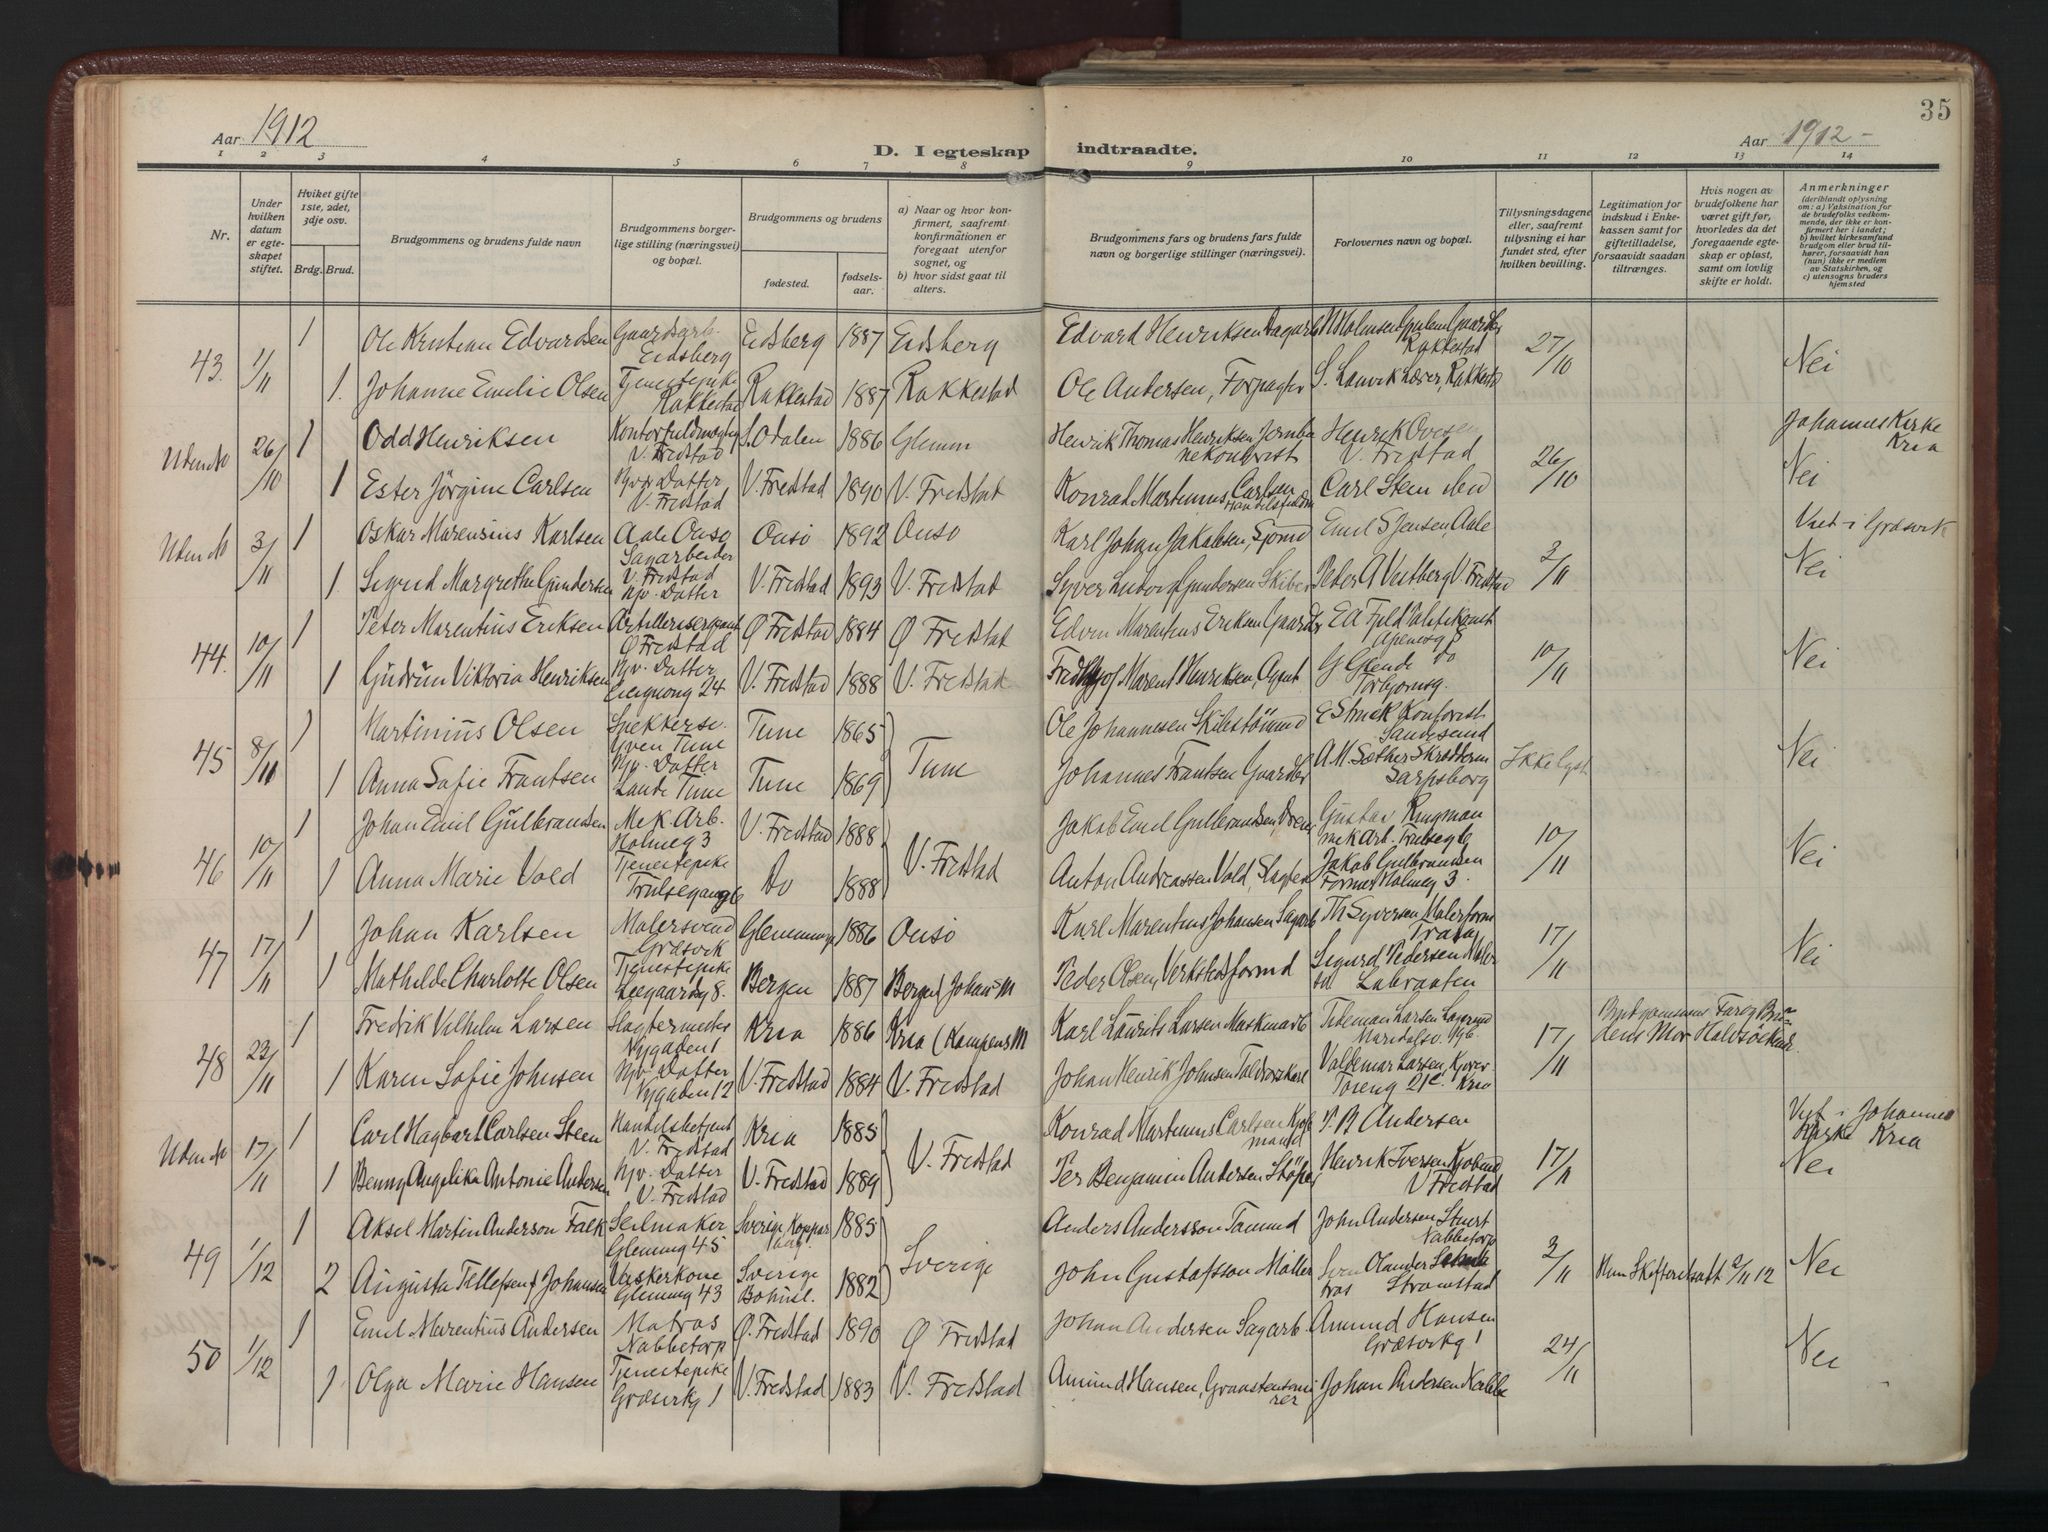 Aar 1912
D. I egteskap indtraadte.
35
Aar 1912
1 2 3 4 5 6 7 8 9 10 11 12 13 14
Nr.
Under hvilken datum er egteskapet stiftet.
Hvilket gifte 1ste, 2det, 3dje osv.
Brdg. Brud.
Brudgommens og brudens fulde navn
Brudgommens borgerlige stilling (næringsvei) og bopæl.
Brudgommens og brudens
fødested. fødselsaar.
a) Naar og hvor konfirmert, saafremt konfirmationen er foregaat utenfor sognet, og
b) hvor sidst gaat til alters.
Brudgommens fars og brudens fars fulde navn og borgerlige stillinger (næringsvei).
Forlovernes navn og bopæl.
Tillysningsdagene eller, saafremt tillysning ei har fundet sted, efter hvilken bevilling.
Legitimation for indskud i Enkekassen samt for giftetilladelse, forsaavidt saadan tiltrænges.
Hvis nogen av brudefolkene har været gift før, hvorledes da det foregaaende egteskap er opløst, samt om lovlig skifte er holdt.
Anmerkninger
(deriblandt oplysning om: a) Vaksination for de brudefolks vedkommende, der ikke er konfirmert her i landet;
b) hvilket kirkesamfund brudgom eller brud tilhører, forsaavidt han (hun) ikke er medlem av Statskirken, og
c) utensogns bruders hjemsted
43. 1/11 1 Ole Kristian Edvardsen Gaardsarb. Eidsberg Eidsberg 1887 Eidsberg Edvard Henriksen Dagarb Gaardbr Rakkestad 27/10 Nei
1. Johanne Emilie Olsen Tjenestepike Rakkestad Rakkestad 1887 Rakkestad Ole Andersen, Forpagter S. Lanvik Lærer, Rakkestad
Uden No 26/10 1 Odd Henriksen Kontorfuldmægtig V. Fredstad S. Odalen 1886 Glemm Henrik Thomas Henriksen Jernbanekontorist Henrik Ovesen V. Fredstad 26/10 Johannes Kirke Kria
1 Ester Jörgine Carlsen Hjv. Datter V. Fredstad V. Fredstad 1890 V. Fredstad Konrad Martinius Carlsen Carl Steen ibid Nei
Uden No 3/11 1 Oskar Marensius Karlsen Aale Onsö Sagarbeider Onsö 1892 Onsö Karl Johan Jakobsen, Sjömd Emil S Jensen, Aale 3/11 Viet i Græsvik
1 Sigrid Margrethe Gundersen V. Fredstad Hjv. Datter V. Fredstad 1893 V. Fredstad Syver Ludvig Gundersen Skiber Peter A Vestberg V. Fredstad Nei
44. 10/11 1 Peter Marentius Eriksen Artillerisersjant Ø Fredstad Ø Fredstad 1884 Ø Fredstad Edvin Marentius Eriksen Gaardbr E A Fjeld Politikonst 10/11 Nei
1 Gudrun Viktoria Henriksen Hjv. Datter 24 V. Fredstad 1888 V. Fredstad Fredthjof Marent Henriksen, Agent do Torbjornsg.
45 8/11 1 Martinius Olsen Yven Tune Tune 1865 Tune Ole Johannesen Skibstömmd E Struck Kontorist Sandesund Ikke lyst Nei
1 Anna Sofie Frantsen Hjv. Datter Lande Tune Tune 1869 Johannes Frantsen Gaardbr A. M. Sæther Skrædderm Sarpsborg
46 10/11 1 Johan Emil Gulbrandsen Mek Arb. Holmeg 3 V. Fredstad 1888 V. Fredstad Jakob Emil Gulbrandsen, Gustav Ringman mek Arb. Trulseg 6 10/11 Nei
1 Anna Marie Vold Tjenestepike Trulsegangen 6 Do 1888 Anton Andreassen Vold, Slagter Jakob Gulbrandsen Former Holmeg 3
47 17/11 1 Johan Karlsen Malersvend Græsvik Glemminge 1886 Onsö Karl Marentius Johansen Sagarb Th Syversen Malerform Trara 17/11 Nei
1 Mathilde Charlotte Olsen Tjenestepike 8. Bergen 1887 Bergen Johans M Peder Olsen, Verkstedsformd Sigurd Pedersen Maler Labraaten
48 23/11 1 Fredrik Vilhelm Larsen Slagtermester Nygaden 1 Kria 1886 Kria (Kampens M Karl Laurits Larsen Maskinarb Tideman Larsen Maridalsv. 17/11 Brudgommens Far og Brudens Mor Halvsöskende.
1 Karen Sofie Johnsen Hjv. Datter Nygaden 12 V. Fredstad 1884 V. Fredstad Johan Henrik Johnsen Toldvagtkarl Valdemar Larsen, Toieng 21 c. Kria
Uden No 17/11 1 Carl Hagbart Carlsen Steen Handelsbetjent V. Fredstad Kria 1885 V. Fredstad Konrad Martinius Carlsen Kjöbmand P. B Andersen 17/11 Viet i Johannes Kirke Kria
1 Benny Angelika Antonie Andersen Hjv. Datter V. Fredstad V. Fredstad 1889 Per Benjamin Andersen Henrik Iversen Kjöbmd V Fredstad Nei
49 1/12 1 Aksel Martin Anderson Falk Seilmaker Glemmg 45 Sverige Kopparb 1885 Sverige Anders Andersson Tömmd John Andersen Stuert Nabbetorp 3/11 Hun Skifteretsatt 2/11 12 Nei
2 Augusta Tellefsen f Johansen Vaskerkone Glemmg 43 Sverige Bohusl. 1882 John Gustafsson Möller Sven Olander Stromstad
50 1/12 1 Emil Marentius Andersen Matros Nabbetorp Ø. Fredstad 1890 Ø Fredstad Johan Andersen Sagarb. Amund Hansen Græsvikg 1 24/11 Nei
1 Olga Marie Hansen Tjenestepike Græsvikg 1 V. Fredstad 1883 V. Fredstad Amund Hansen, Graastensmurer Johan Andersen